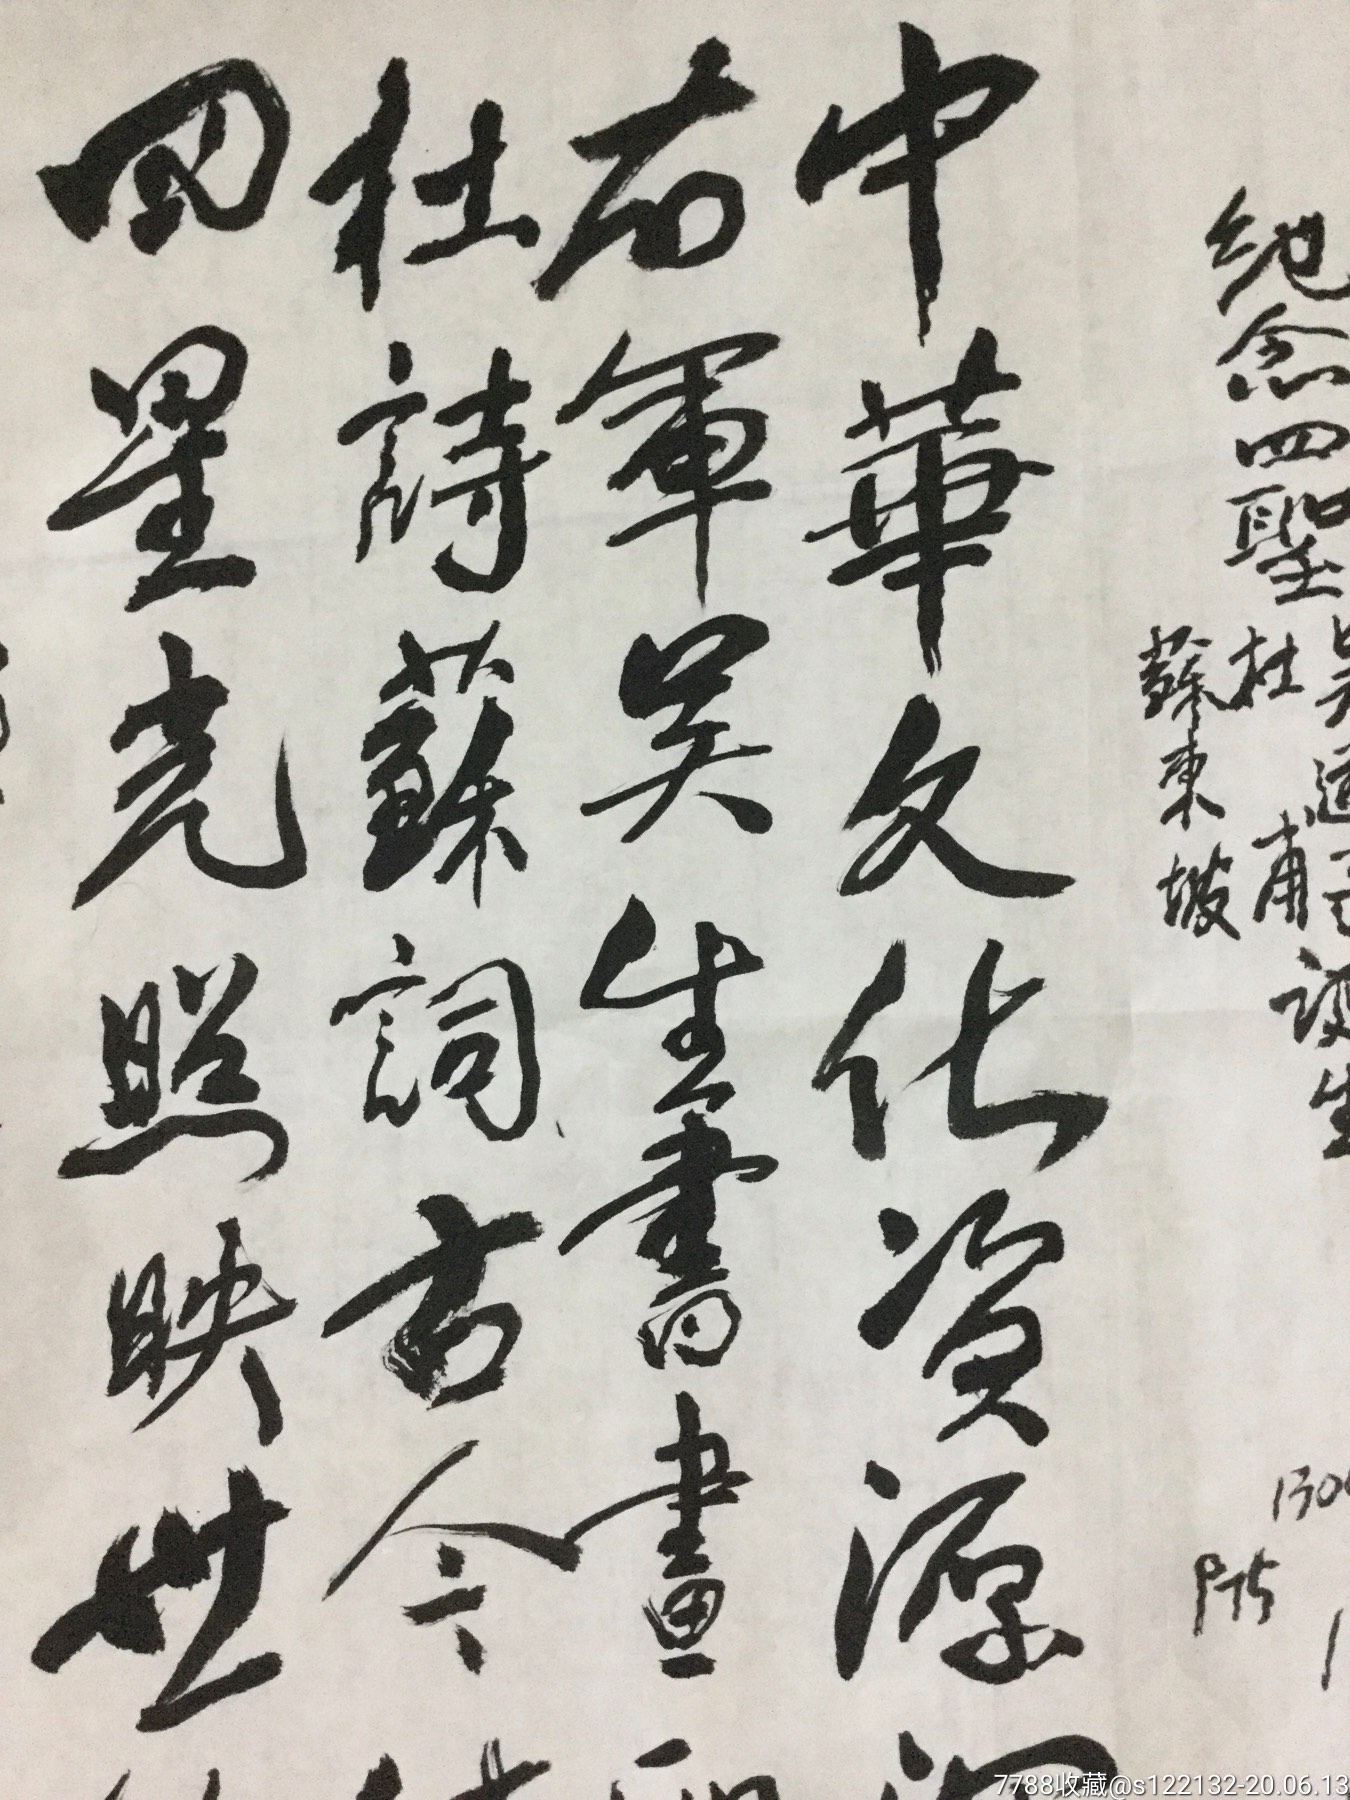 纪念四聖
吴道子
杜甫
蘇東坡
誕生
中華文化资源
右軍吴生書畫
杜詩蘇詞古今
四星光照映世
7788收藏@s122132-20.06.13